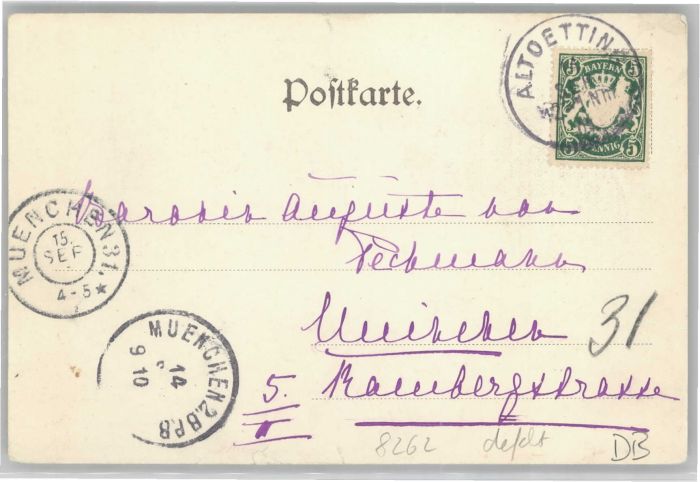 ALTOETTING
5 BAYERN 5
5 PFENNIG 5
Poſtkarte.
Baronin Auguste von
Pechmann
MUENCHEN 31.
15.
SEP
4-5 ★
München
31
5. Rambergstrasse
II
MUENCHEN 2.B.P.8
14
9 10
8262 defekt
DB